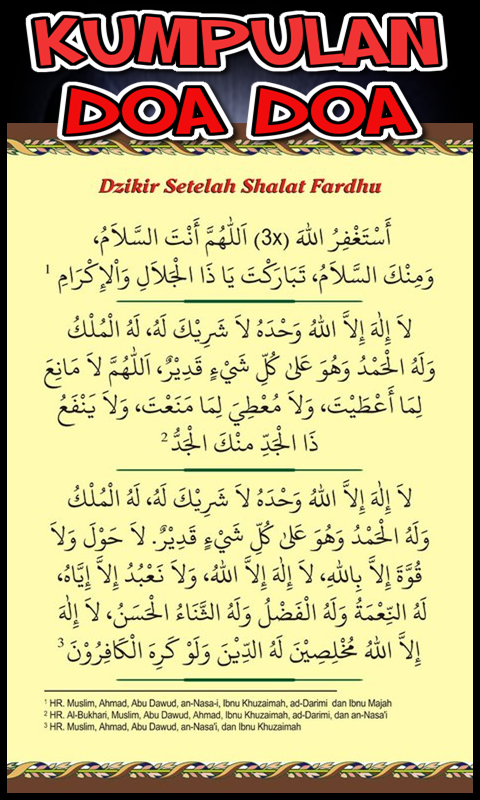 KUMPULAN
DOA DOA
Dzikir Setelah Shalat Fardhu
أَسْتَغْفِرُ اللهَ (3x) اَللّٰهُمَّ أَنْتَ السَّلاَمُ،
وَمِنْكَ السَّلاَمُ، تَبَارَكْتَ يَا ذَا الْجَلاَلِ وَاْلإِكْرَامِ 1
لاَ إِلٰهَ إِلاَّ اللهُ وَحْدَهُ لاَ شَرِيْكَ لَهُ، لَهُ الْمُلْكُ
وَلَهُ الْحَمْدُ وَهُوَ عَلىٰ كُلِّ شَيْءٍ قَدِيْرٌ، اَللّٰهُمَّ لاَ مَانِعَ
لِمَا أَعْطَيْتَ، وَلاَ مُعْطِيَ لِمَا مَنَعْتَ، وَلاَ يَنْفَعُ
ذَا الْجَدِّ مِنْكَ الْجَدُّ 2
لاَ إِلٰهَ إِلاَّ اللهُ وَحْدَهُ لاَ شَرِيْكَ لَهُ، لَهُ الْمُلْكُ
وَلَهُ الْحَمْدُ وَهُوَ عَلىٰ كُلِّ شَيْءٍ قَدِيْرٌ. لاَ حَوْلَ وَلاَ
قُوَّةَ إِلاَّ بِاللهِ، لاَ إِلٰهَ إِلاَّ اللهُ، وَلاَ نَعْبُدُ إِلاَّ إِيَّاهُ،
لَهُ النِّعْمَةُ وَلَهُ الْفَضْلُ وَلَهُ الثَّنَاءُ الْحَسَنُ، لاَ إِلٰهَ
إِلاَّ اللهُ مُخْلِصِيْنَ لَهُ الدِّيْنَ وَلَوْ كَرِهَ الْكَافِرُوْنَ 3
1 HR. Muslim, Ahmad, Abu Dawud, an-Nasa-i, Ibnu Khuzaimah, ad-Darimi dan Ibnu Majah
2 HR. Al-Bukhari, Muslim, Abu Dawud, Ahmad, Ibnu Khuzaimah, ad-Darimi, dan an-Nasa'i
3 HR. Muslim, Ahmad, Abu Dawud, an-Nasa'i, dan Ibnu Khuzaimah